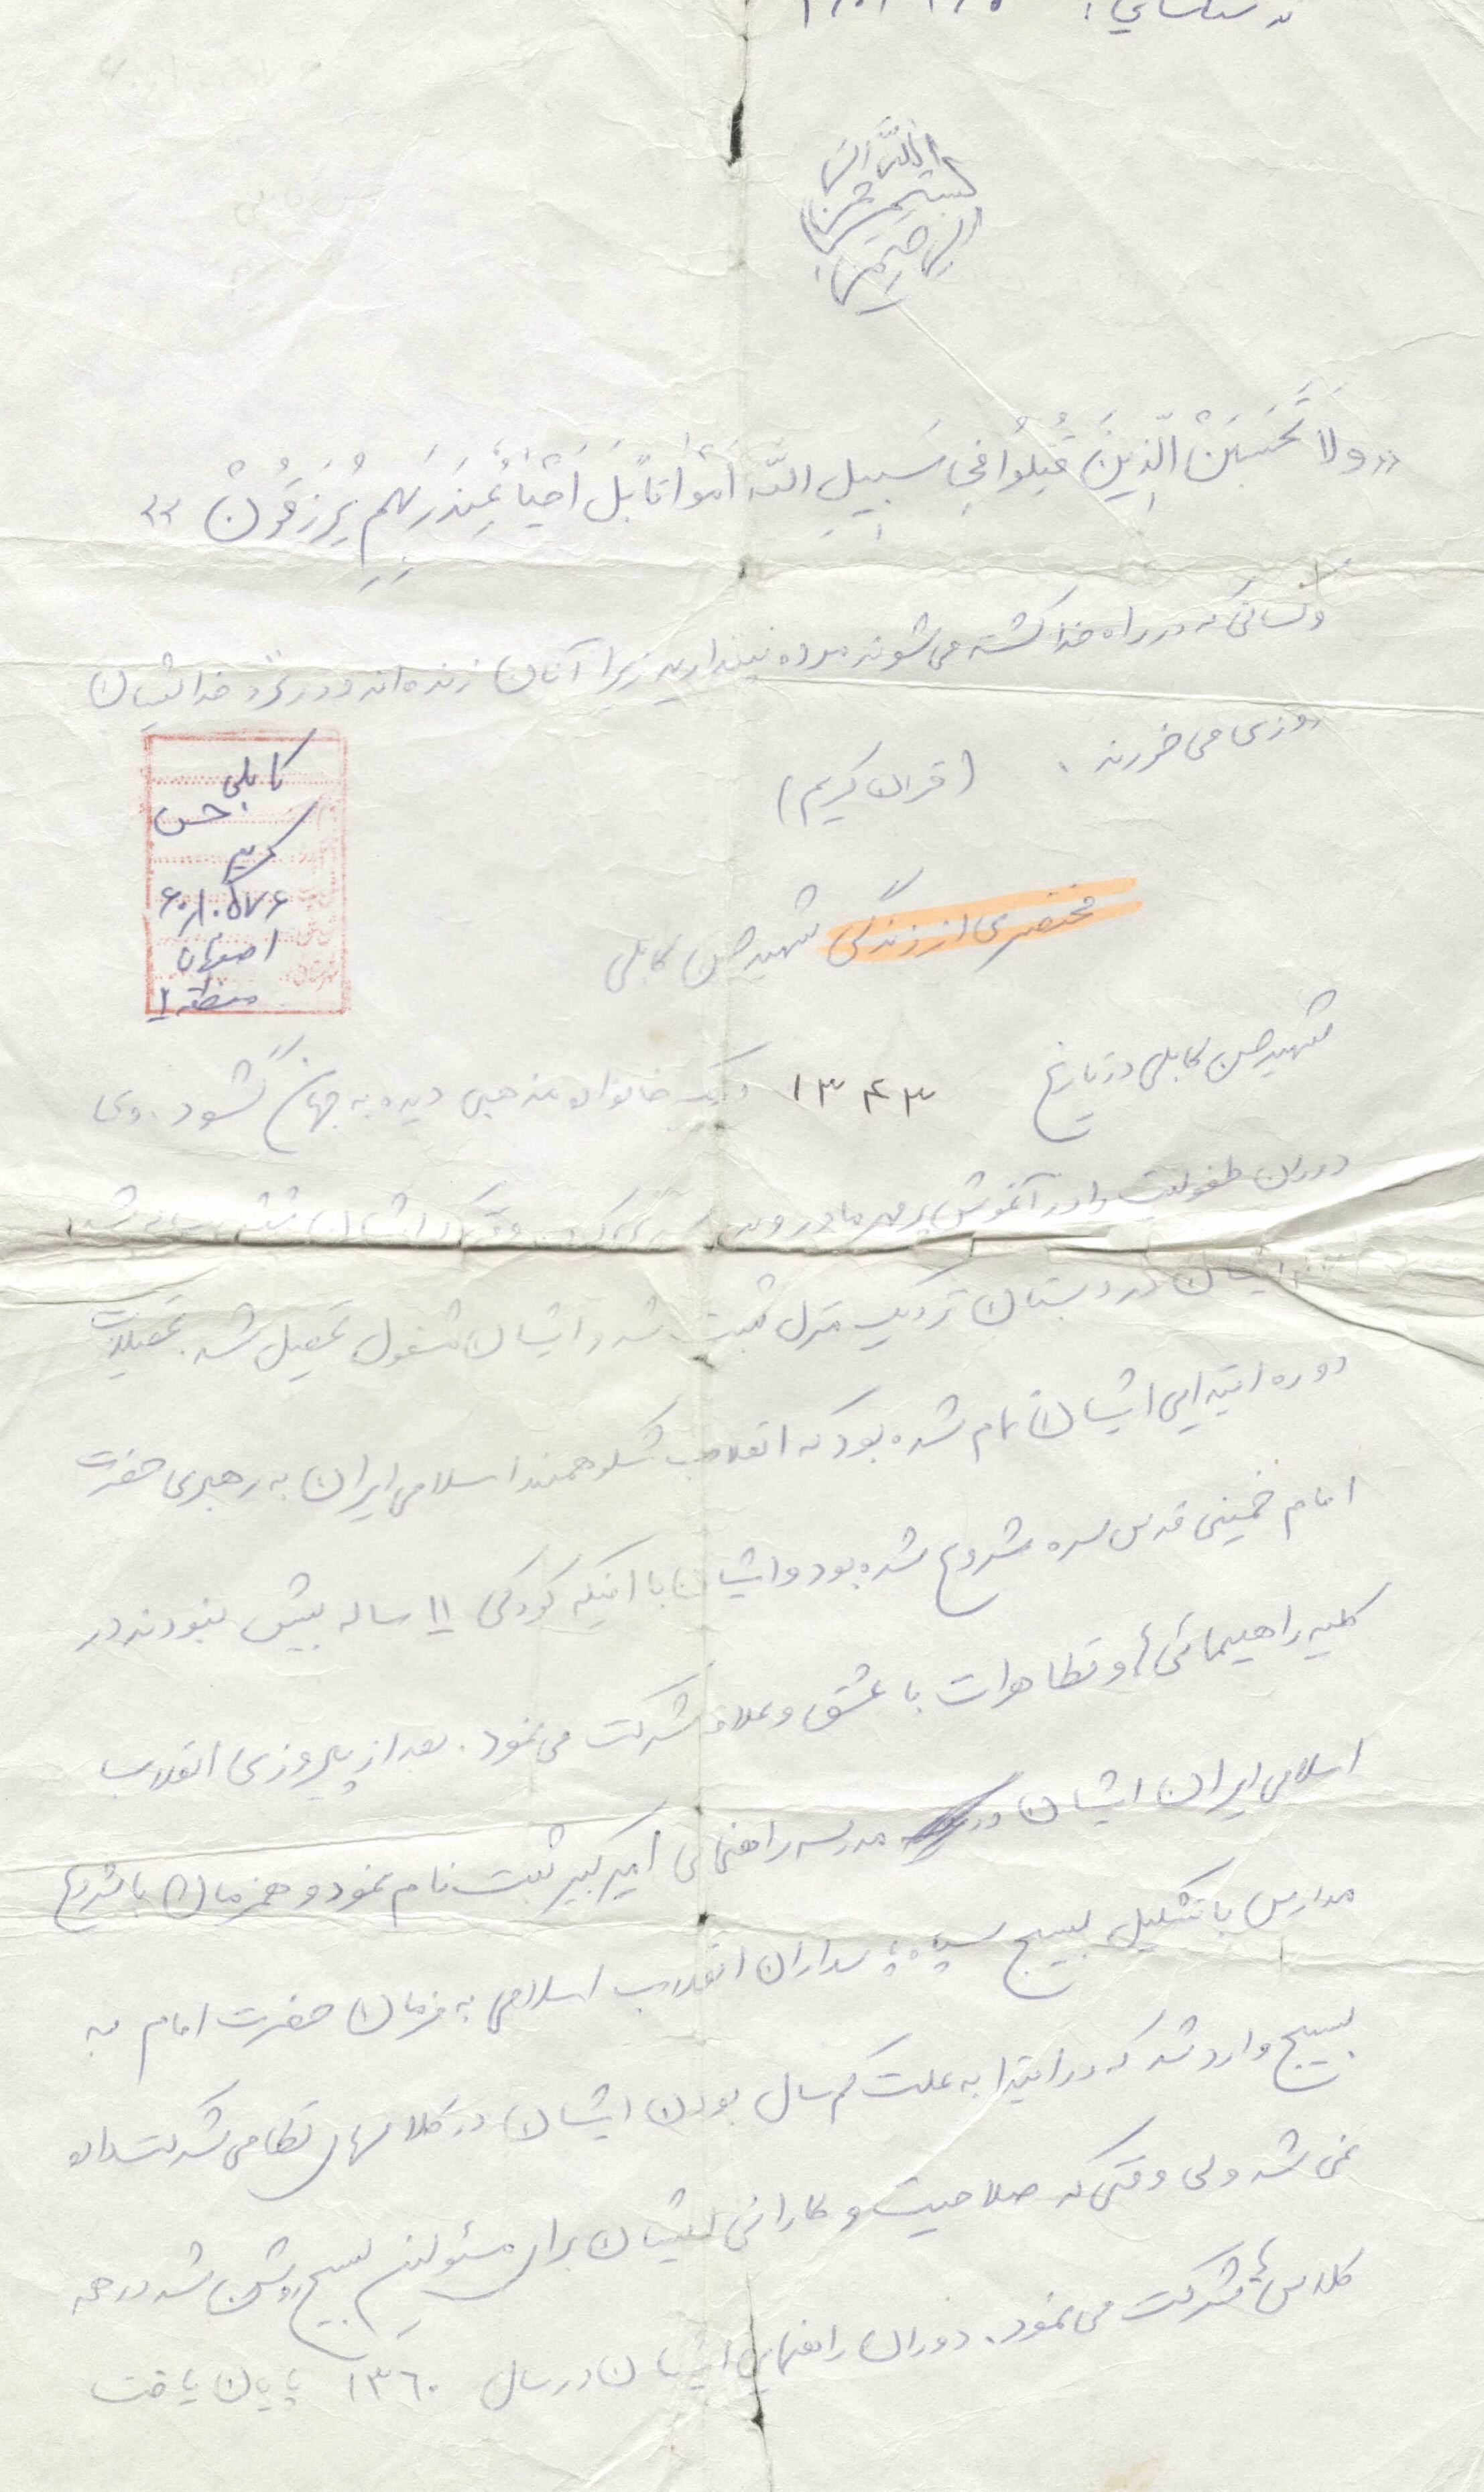 بسم الله الرحمن الرحیم
«وَلَا تَحْسَبَنَّ الَّذِینَ قُتِلُوا فِی سَبِیلِ اللَّهِ أَمْوَاتًا بَلْ أَحْیَاءٌ عِنْدَ رَبِّهِمْ یُرْزَقُونْ»
و کسانی که در راه خدا کشته می شوند مرده نپندارید زیرا آنان زنده اند و در نزد خدا ایشان
روزی می خورند . (قران کریم)
کابلی
حسن
کریم
۶۰۱۰۵۷۶
اصفهان
منطقه ۲
مختصری از زندگی شهید حسن کابلی
شهید حسن کابلی در تاریخ ۱۳۴۳ در یک خانواده مذهبی دیده به جهان گشود. وی
دوران طفولیت را در آغوش پر مهر مادر و
ایشان در دبستان نزدیک منزل ثبت شد و ایشان مشغول تحصیل شد. تحصیلات
دوره ابتدایی ایشان تمام شده بود که انقلاب شکوهمند اسلامی ایران به رهبری حضرت
امام خمینی قدس سره شروع شده بود و ایشان با اینکه کودکی ۱۱ ساله بیش نبودند در
کلیه راهپیمائی ها و تظاهرات با عشق و علاقه شرکت می نمود. بعد از پیروزی انقلاب
اسلامی ایران ایشان در مدرسه راهنمائی امیر کبیر ثبت نام نمود و همزمان با شروع
مدارس با تشکیل بسیج سپاه پاسداران انقلاب اسلامی به فرمان حضرت امام به
بسیج وارد شد که در ابتدا به علت کم سال بودن ایشان در کلاسهای نظامی شرکت داده
نمی شد ولی وقتی که صلاحیت و کارائی ایشان برای مسئولین بسیج روشن شد در همه
کلاس ها شرکت می نمود. دوران راهنمایی ایشان در سال ۱۳۶۰ پایان یافت